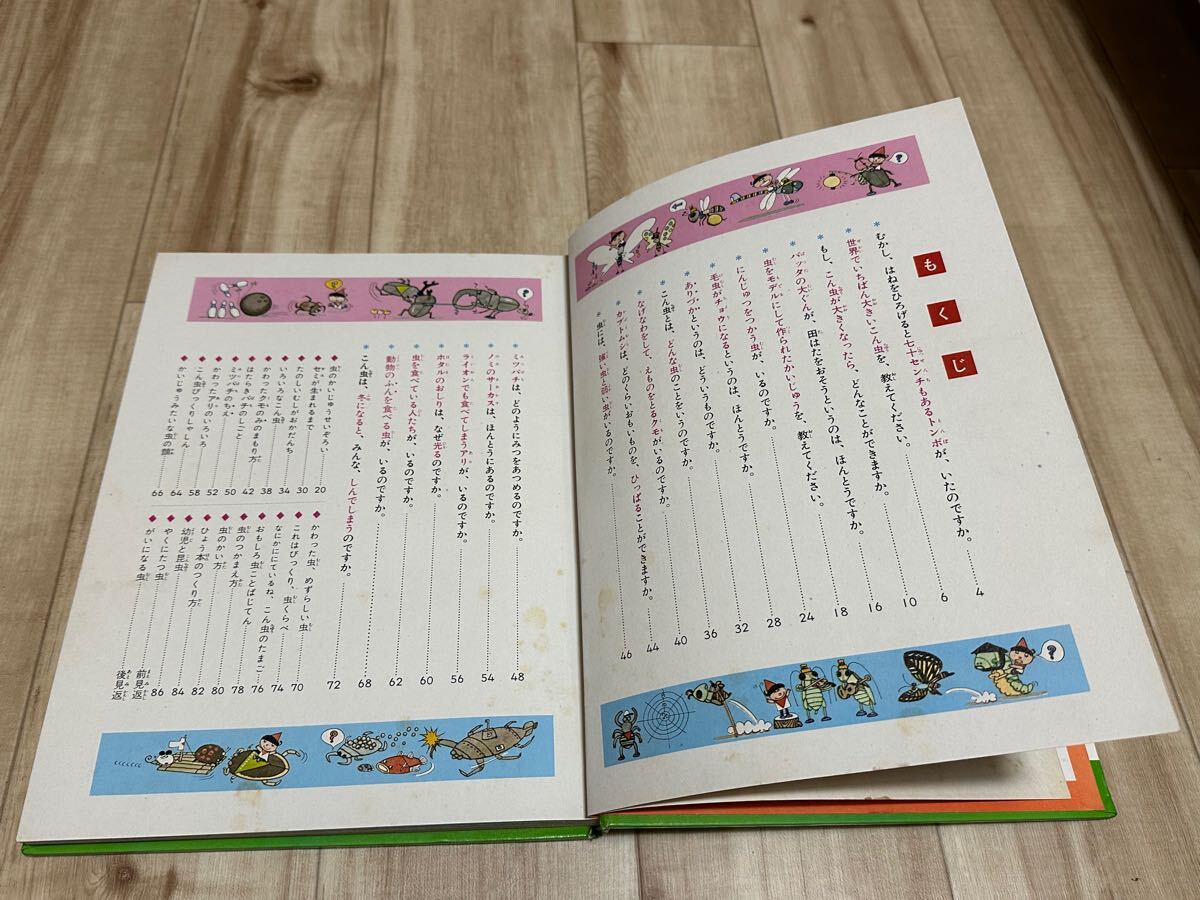 もくじ
＊むかし、はねをひろげると七十センチもあるトンボが、いたのですか。 4
＊世界でいちばん大きいこん虫を、教えてください。 6
＊もし、こん虫が大きくなったら、どんなことができますか。 10
＊バッタの大ぐんが、田はたをおそうというのは、ほんとうですか。 16
＊虫をモデルにして作られたかいじゅうを、教えてください。 18
＊にんじゅつをつかう虫が、いるのですか。 24
＊毛虫がチョウになるというのは、ほんとうですか。 28
＊ありづかというのは、どういうものですか。 32
＊こん虫とは、どんな虫のことをいうのですか。 36
＊なげなわをして、えものをとるクモがいるのですか。 40
＊カブトムシは、どのくらいおもいものを、ひっぱることができますか。 44
＊虫には、強い虫と弱い虫がいるのですか。 46
＊ミツバチは、どのようにみつをあつめるのですか。 48
＊ノミのサーカスは、ほんとうにあるのですか。 54
＊ライオンでも食べてしまうアリが、いるのですか。 56
＊ホタルのおしりは、なぜ光るのですか。 60
＊虫を食べている人たちが、いるのですか。 62
＊動物のふんを食べる虫が、いるのですか。 68
＊こん虫は、冬になると、みんな、しんでしまうのですか。 72
◆虫のかいじゅうせいぞろい 20
◆セミが生まれるまで 30
◆たのしいむしがおかだんち 34
◆いろいろなこん虫 38
◆かわったクモのみのまもり方 42
◆はたらきバチのしごと 50
◆ミツバチのちえ 52
◆かわったアリのいろいろ 58
◆こん虫びっくりしゃしん 64
◆かいじゅうみたいな虫の顔 66
◆かわった虫、めずらしい虫 70
◆これはびっくり、虫くらべ 74
◆なにかににているね、こん虫のたまご 76
◆おもしろ虫ことばじてん 78
◆虫のつかまえ方 80
◆虫のかい方 82
◆ひょう本のつくり方 84
◆幼児と昆虫 86
◆やくにたつ虫 前見返
◆がいになる虫 後見返